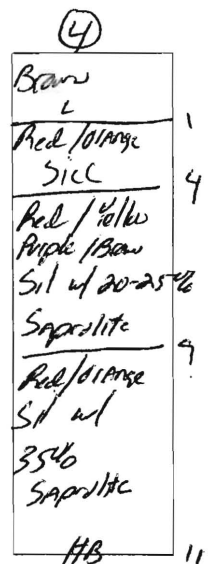 4
Brown
L
1
Red/Orange
SicL
4
Red/Yellw
Purple/Brow
Sil w/ 20-25%
Saprolite
9
Red/Orange
Sil w/
35%
Saprolite
HB 11